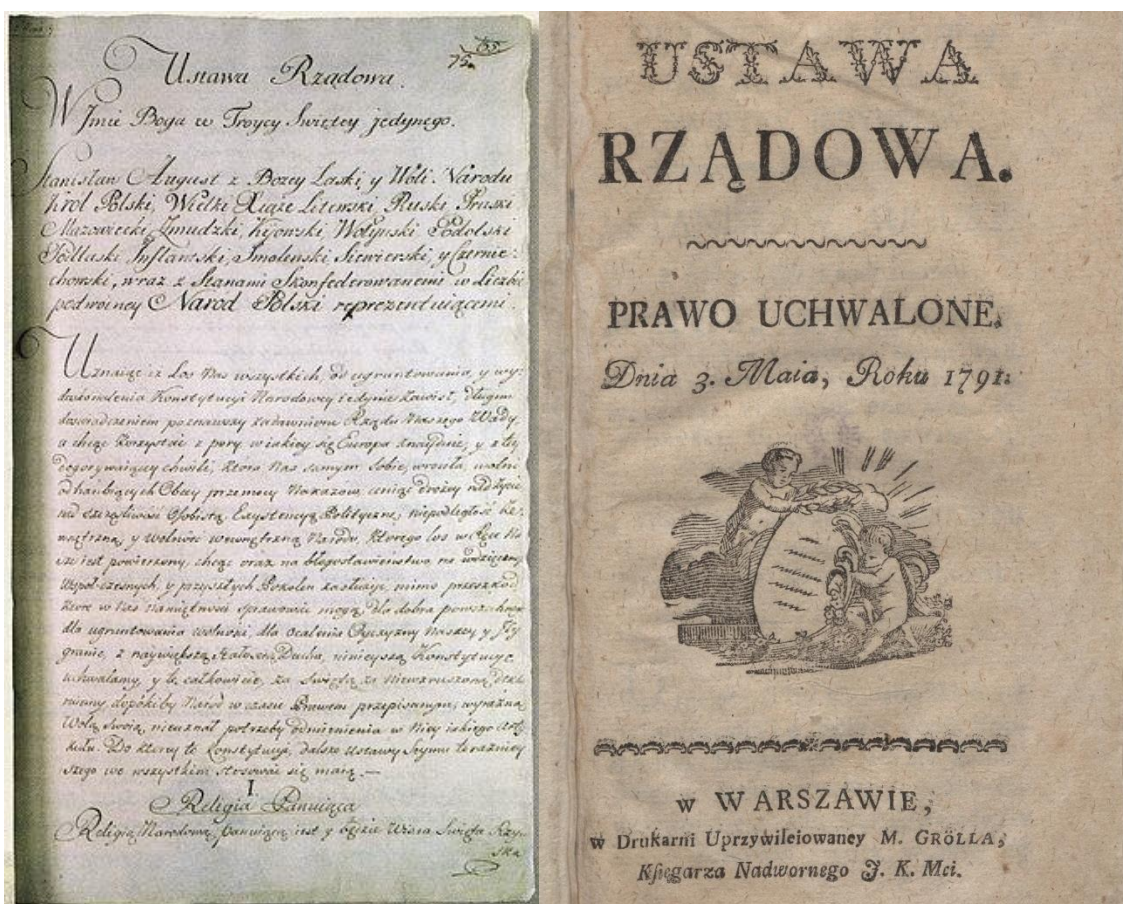 75. 55
Ustawa Rządowa.
W Jmie Boga w Troycy Swiętey jedynego.
Stanisław August z Bozey Łaski, y Woli Narodu
Krol Polski, Wielki Xiąże Litewski, Ruski Pruski
Mazowiecki Zmudzki, Kijowski, Wołyński Podolski
Podlaski Inflantski, Smolenski Siewierski, y Czernie-
chowski, wraz z Stanami Skonfederowanemi w Liczbie
podwoiney Narod Polski reprezentuiącemi.
Uznaiąc iż Los Nas wszystkich, od ugruntowania, y wy-
doskonalenia Konstytucyi Narodowey iedynie zawisł, długim
doswiadczeniem poznawszy zadawnione Rządu Naszego Wady,
a chcąc korzystać z pory, w iakiey się Europa znayduie, y z tey
dogorywaiącey chwili, ktora Nas samym sobie wrociła, wolni
od hanbiących Obcey przemocy Nakazow, ceniąc drożey nad życie
nad szczęsliwość Osobistą, Exystencyą Polityczną, niepodległość ze-
wnętrzną, y wolność wewnętrzną Narodu, ktorego los w Ręce Na-
sze iest powierzony, chcąc oraz na błogosławienstwo, na wdzięczność
Wspoł-czesnych, y przyszłych Pokolen zasłużyć, mimo przeszkod
ktore w Nas Namiętność sprawować mogą, dla dobra powszechnego
dla ugruntowania wolności, dla ocalenia Oyczyzny Naszey y Jey
granic, z naywiększą stałością Ducha, ninieyszą Konstytucyę
uchwalamy, y tę całkowicie, za Swiętą, za Niewzruszoną dekla-
ruiemy, dopókiby Narod w czasie Prawem przepisanym, wyraźną
Wolą swoią, nieuznał potrzeby odmienienia w Niey iakiego arty-
kułu. Do ktorey to Konstytucyi, dalsze Ustawy Seymu terazniey
szego we wszystkim stosować się maią.—
I.
Religia Panuiąca
Religią Narodową panuiącą iest y będzie Wiara Swięta Rzym-
ska
USTAWA
RZĄDOWA.
PRAWO UCHWALONE.
Dnia 3. Maia, Roku 1791.
w WARSZAWIE,
w Drukarni Uprzywileiowaney M. GRÖLLA,
Księgarza Nadwornego J. K. Mci.